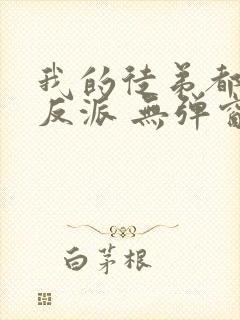 我的徒弟都
反派 無彈窗
白茅根